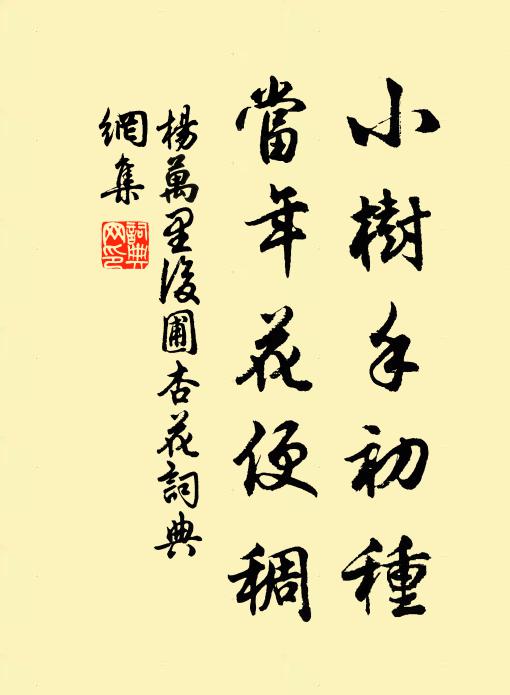 小樹手初種
當年花便稠
楊萬里後圃杏花詞典
網集
詞典
网印